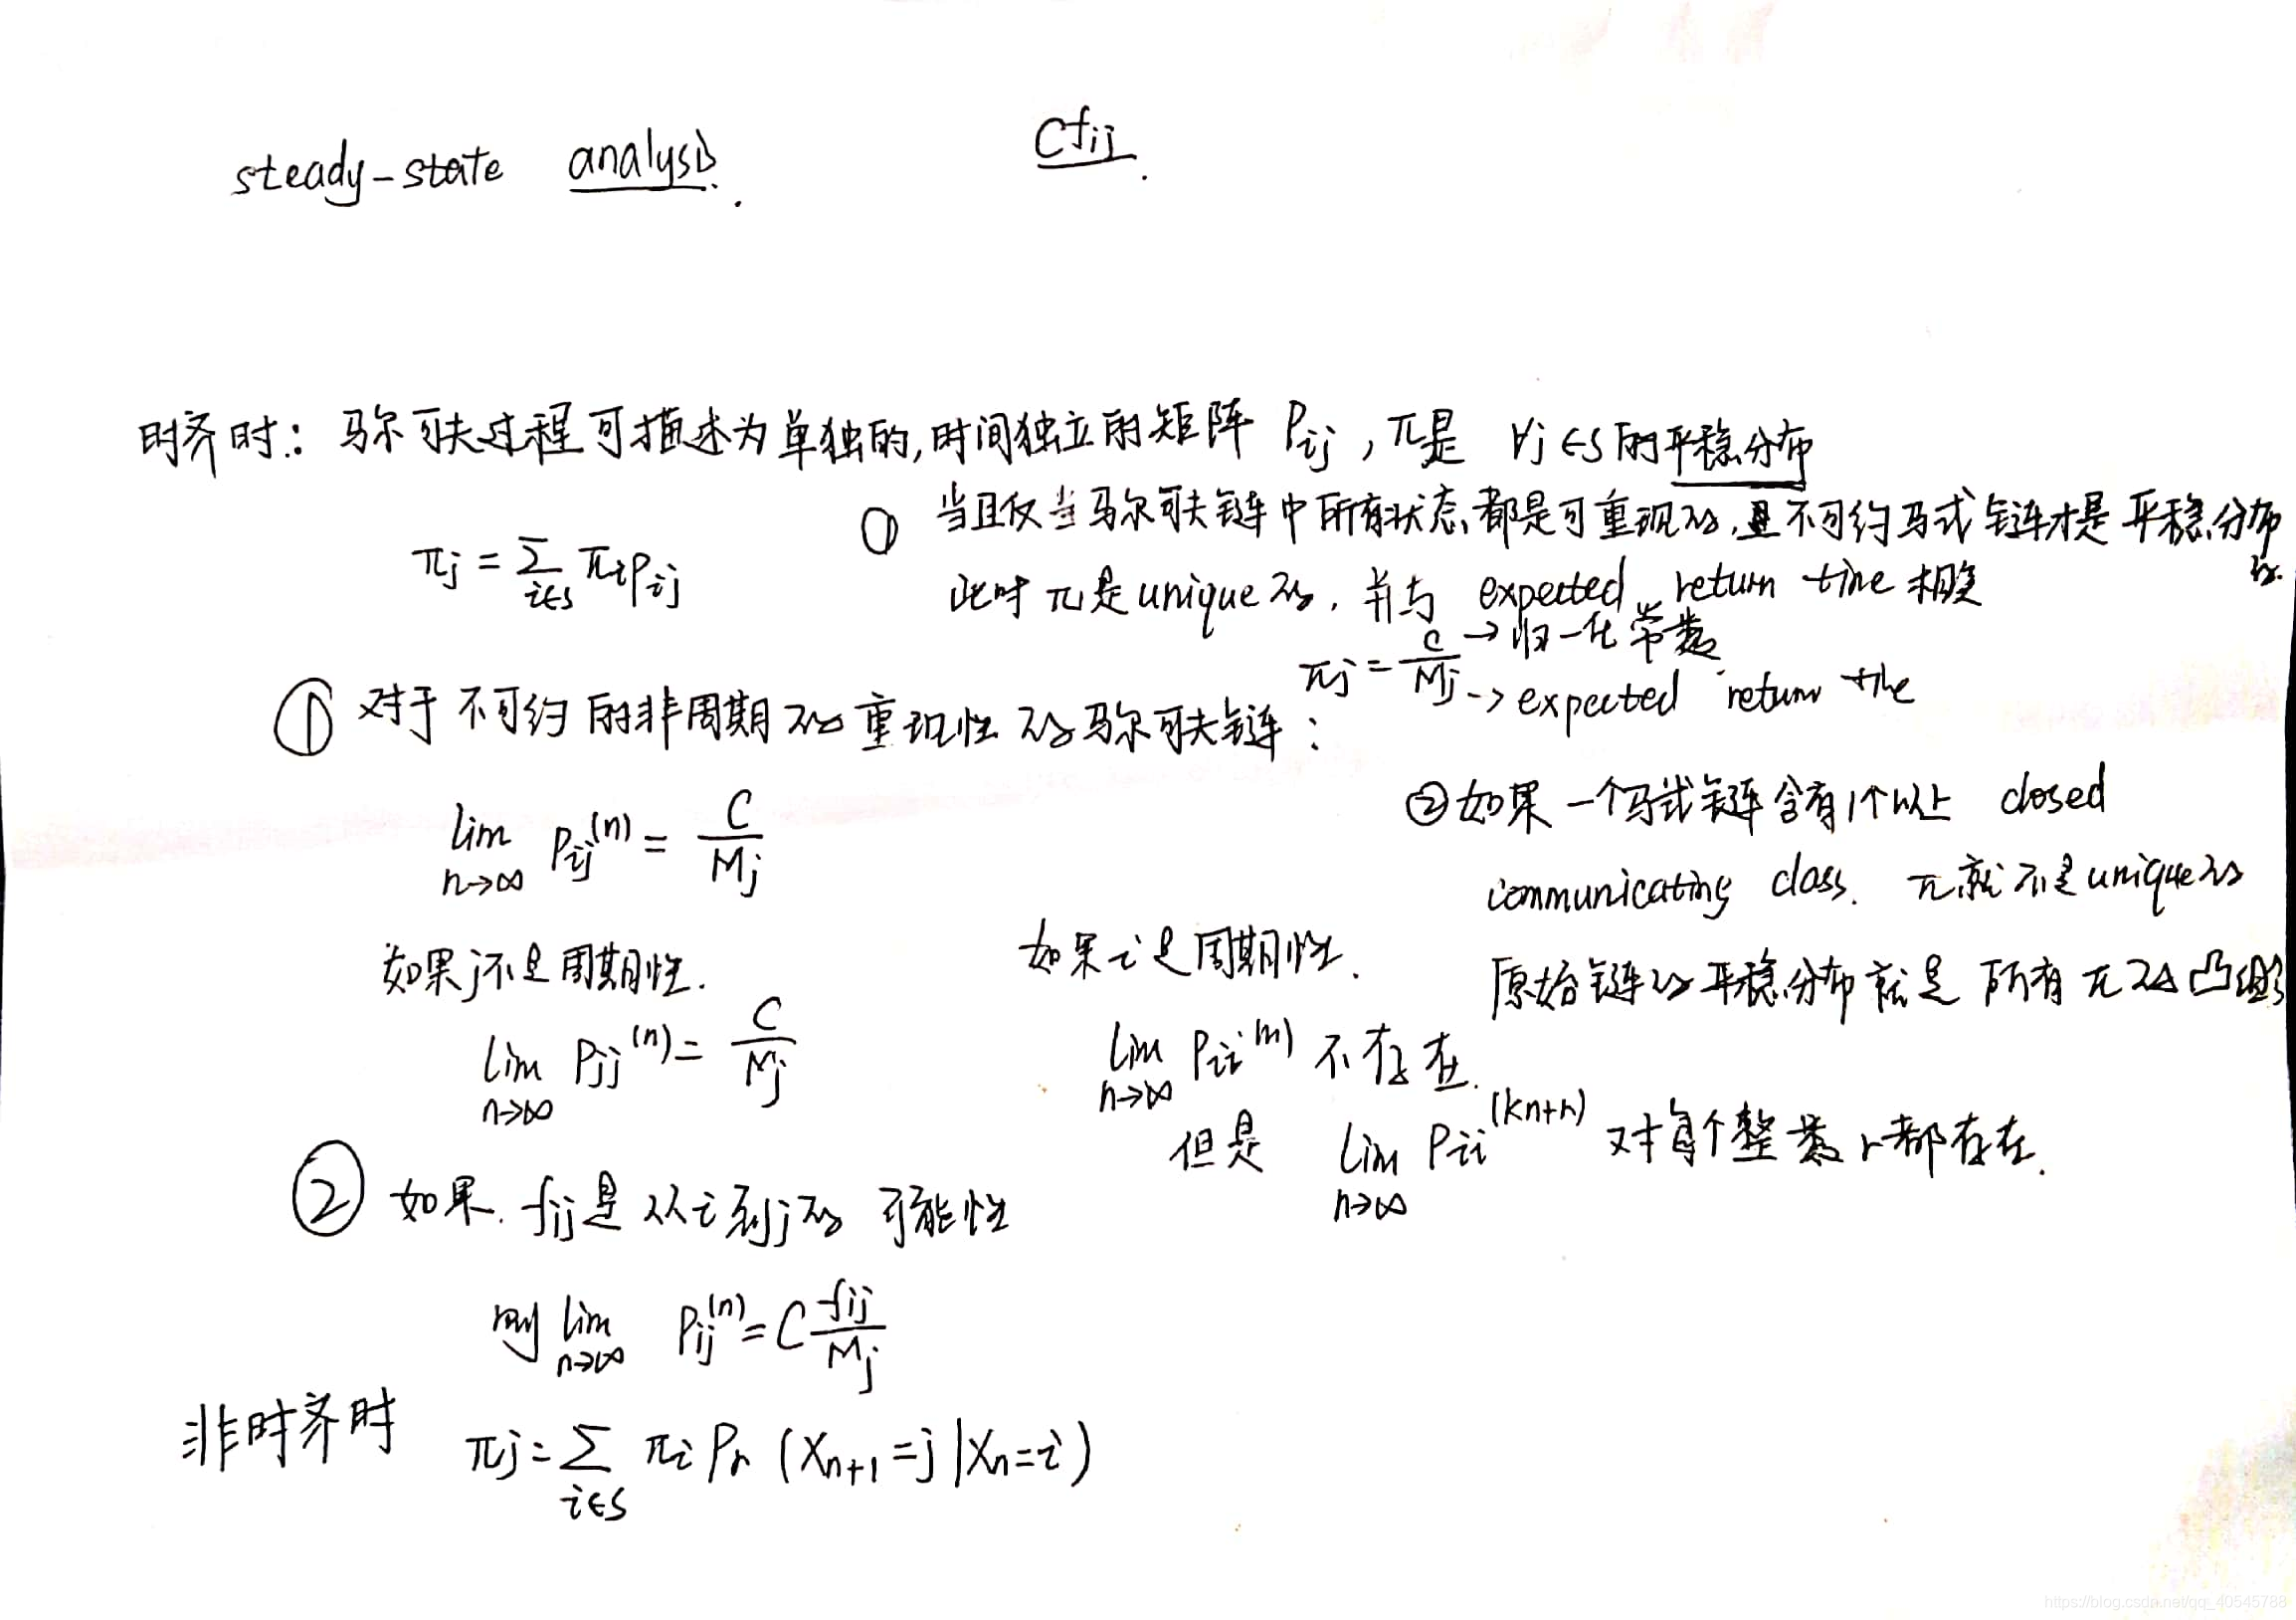 steady-state analysis.
Cfij.
时齐时: 马尔可夫过程可描述为单独的,时间独立的矩阵 Pij , π是 ∀j∈S的平稳分布
πj = ∑i∈S πiPij
① 当且仅当马尔可夫链中所有状态都是可重现的,且不可约马式链才是平稳分布的.
此时 π是unique的, 并与 expected return time 相关
πj = C/Mj → 归一化常数
→ expected return time
① 对于不可约的非周期的重现性的马尔可夫链:
lim n→∞ Pij(n) = C/Mj
② 如果一个马式链含有1个以上 closed
communicating class. π就不是unique的
原始链的平稳分布就是 所有π的凸组合
如果j不是周期性.
lim n→∞ Pjj(n) = C/Mj
如果i是周期性.
lim n→∞ Pii(n) 不存在.
但是 lim n→∞ Pii(kn+r) 对每个整数r都存在.
② 如果. fij是从i到j的 可能性
则 lim n→∞ Pij(n) = C fij/Mj
非时齐时 πj = ∑i∈S πi Pr (Xn+1=j|Xn=i)
https://blog.csdn.net/qq_40545788